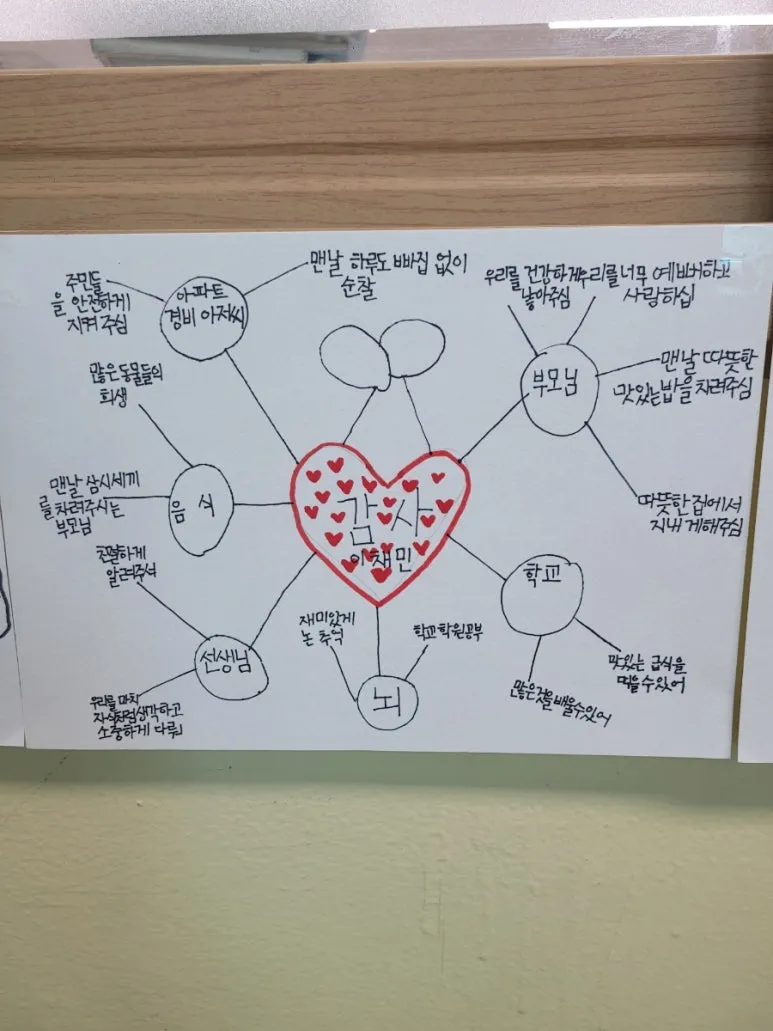 주민들
을 안전하게
지켜 주심
아파트
경비 아저씨
맨날 하루도 빠짐 없이
순찰
우리를 건강하게
낳아주심
우리를 너무 예뻐하고
사랑하심
부모님
맨날 따뜻한
맛있는 밥을 차려주심
따뜻한 집에서
지내게 해주심
많은 동물들의
희생
음식
맨날 삼시세끼
를 차려주시는
부모님
감사
이채민
친절하게
알려주셔
선생님
우리를 마치
자식처럼 생각하고
소중하게 다뤄
재미있게
논 추억
학교 학원 공부
뇌
학교
많은 것을 배울 수 있어
맛있는 급식을
먹을 수 있어